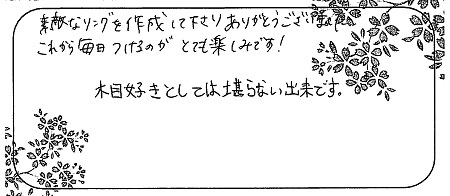 素敵なリングを作成して下さりありがとうございました。
これから毎日つけるのがとても楽しみです!
木目好きとしては堪らない出来です。